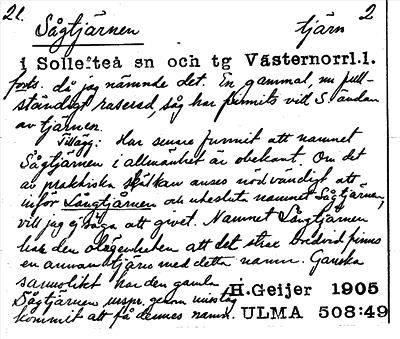 21.
Sågtjärnen tjärn 2
i Sollefteå sn och tg Västernorrl.l.
forts. då jag nämnde det. En gammal, nu full-
ständigt raserad, såg har funnits vid S. ändan
av tjärnen.
Tillägg: Har senare funnit att namnet
Sågtjärnen i allmänhet är obekant. Om det
av praktiska skäl kan anses nödvändigt att
införa Långtjärnen och utesluta namnet Sågtjärnen,
vill jag ej säga att givet. Namnet Långtjärnen
har den olägenheten att det strax bredvid finns
en annan tjärn med detta namn. Ganska
sannolikt har den gamla
Sågtjärnen urspr. genom misstag
kommit att få dennes namn.
H.Geijer 1905
ULMA 508:49